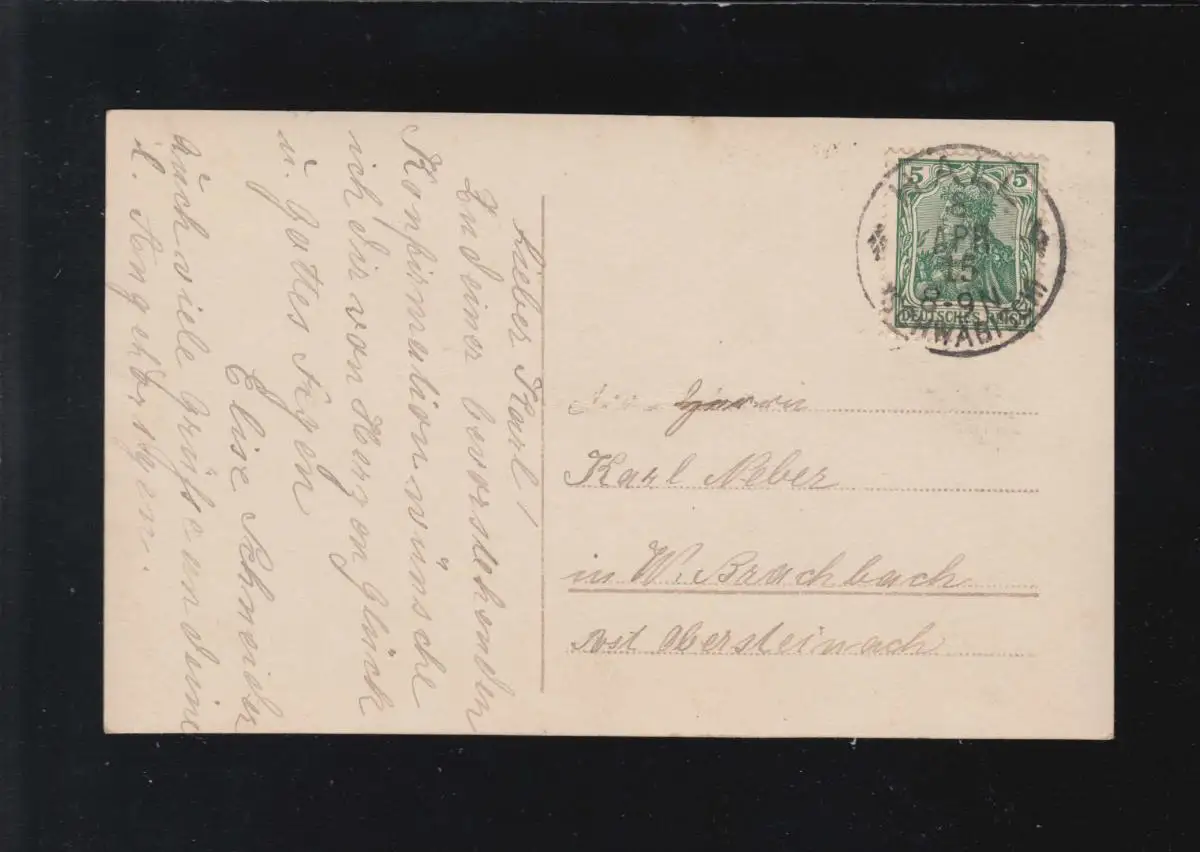 Lieber Karl!
Zu deiner bevorstehenden
Konfirmation wünsche
ich dir von Herzen Glück
u. Gottes Segen
Elise Schneider
auch viele Grüße an deine
l. Angehörigen.
5 5
DEUTSCHES REICH
HALL
8
APR
15
8-9N
SCHWÄB.
Herrn
Karl Neber
in W. Brachbach
Post Obersteinach